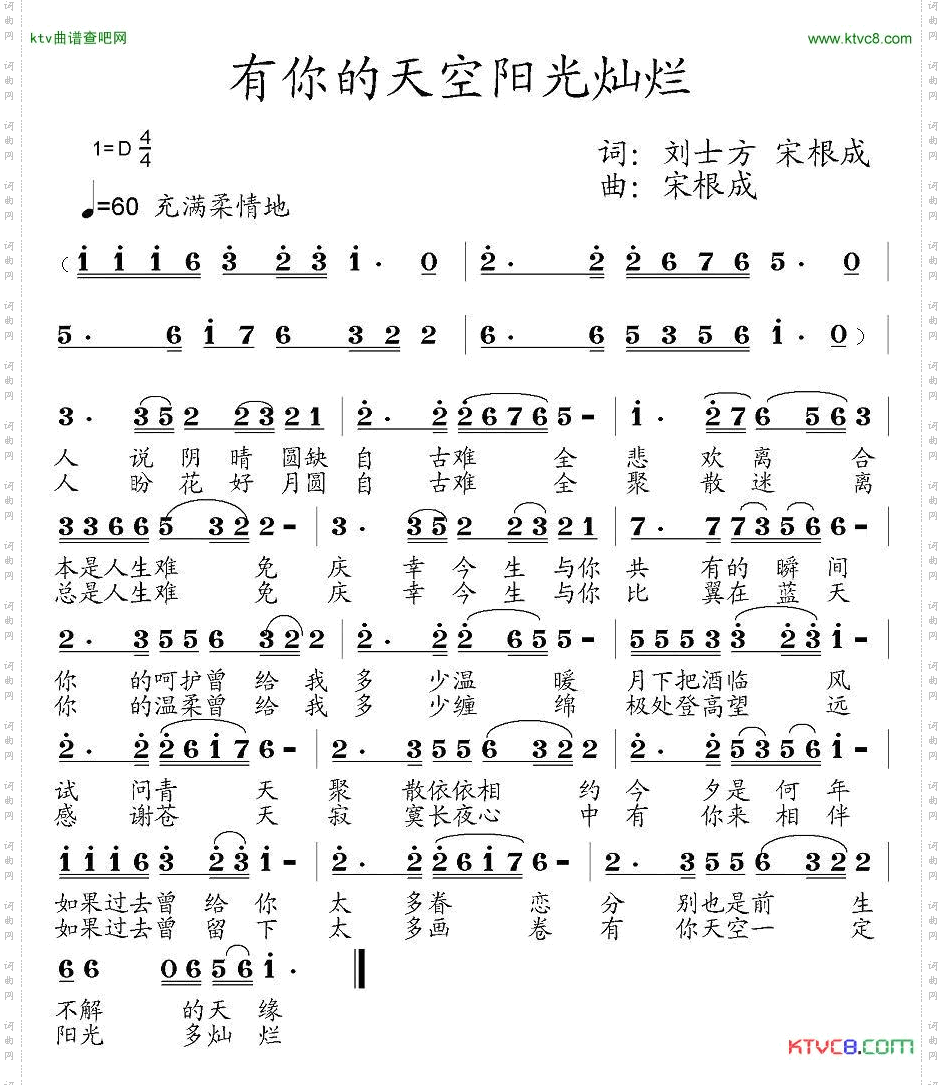 ktv曲谱查吧网
www.ktvc8.com
有你的天空阳光灿烂
1=D 4/4
词：刘士方 宋根成
曲：宋根成
♩=60 充满柔情地
（i i i 6 3 2 3 i · 0 | 2 · 2 2 6 7 6 5 · 0 |
5 · 6 i 7 6 3 2 2 | 6 · 6 5 3 5 6 i · 0） |
3 · 3 5 2 2 3 2 1 | 2 · 2 2 6 7 6 5 - | i · 2 7 6 5 6 3 |
人 说 阴 晴 圆缺 自 古难 全 悲 欢 离 合
人 盼 花 好 月圆 自 古难 全 聚 散 迷 离
3 3 6 6 5 3 2 2 - | 3 · 3 5 2 2 3 2 1 | 7 · 7 7 3 5 6 6 - |
本是人生难 免 庆 幸 今 生 与你 共 有的 瞬 间
总是人生难 免 庆 幸 今 生 与你 比 翼在 蓝 天
2 · 3 5 5 6 3 2 2 | 2 · 2 2 6 5 5 - | 5 5 5 3 3 2 3 i - |
你 的呵护曾 给 我 多 少温 暖 月下把酒临 风
你 的温柔曾 给 我 多 少缠 绵 极处登高望 远
2 · 2 2 6 i 7 6 - | 2 · 3 5 5 6 3 2 2 | 2 · 2 5 3 5 6 i - |
试 问青 天 聚 散依依相 约 今 夕是 何 年
感 谢苍 天 寂 寞长夜心 中 有 你来 相 伴
i i i 6 3 2 3 i - | 2 · 2 2 6 i 7 6 - | 2 · 3 5 5 6 3 2 2 |
如果过去曾 给 你 太 多眷 恋 分 别也是前 生
如果过去曾 留 下 太 多画 卷 有 你天空一 定
6 6 0 6 5 6 i ·
不解 的天 缘
阳光 多灿 烂
KTVC8.COM